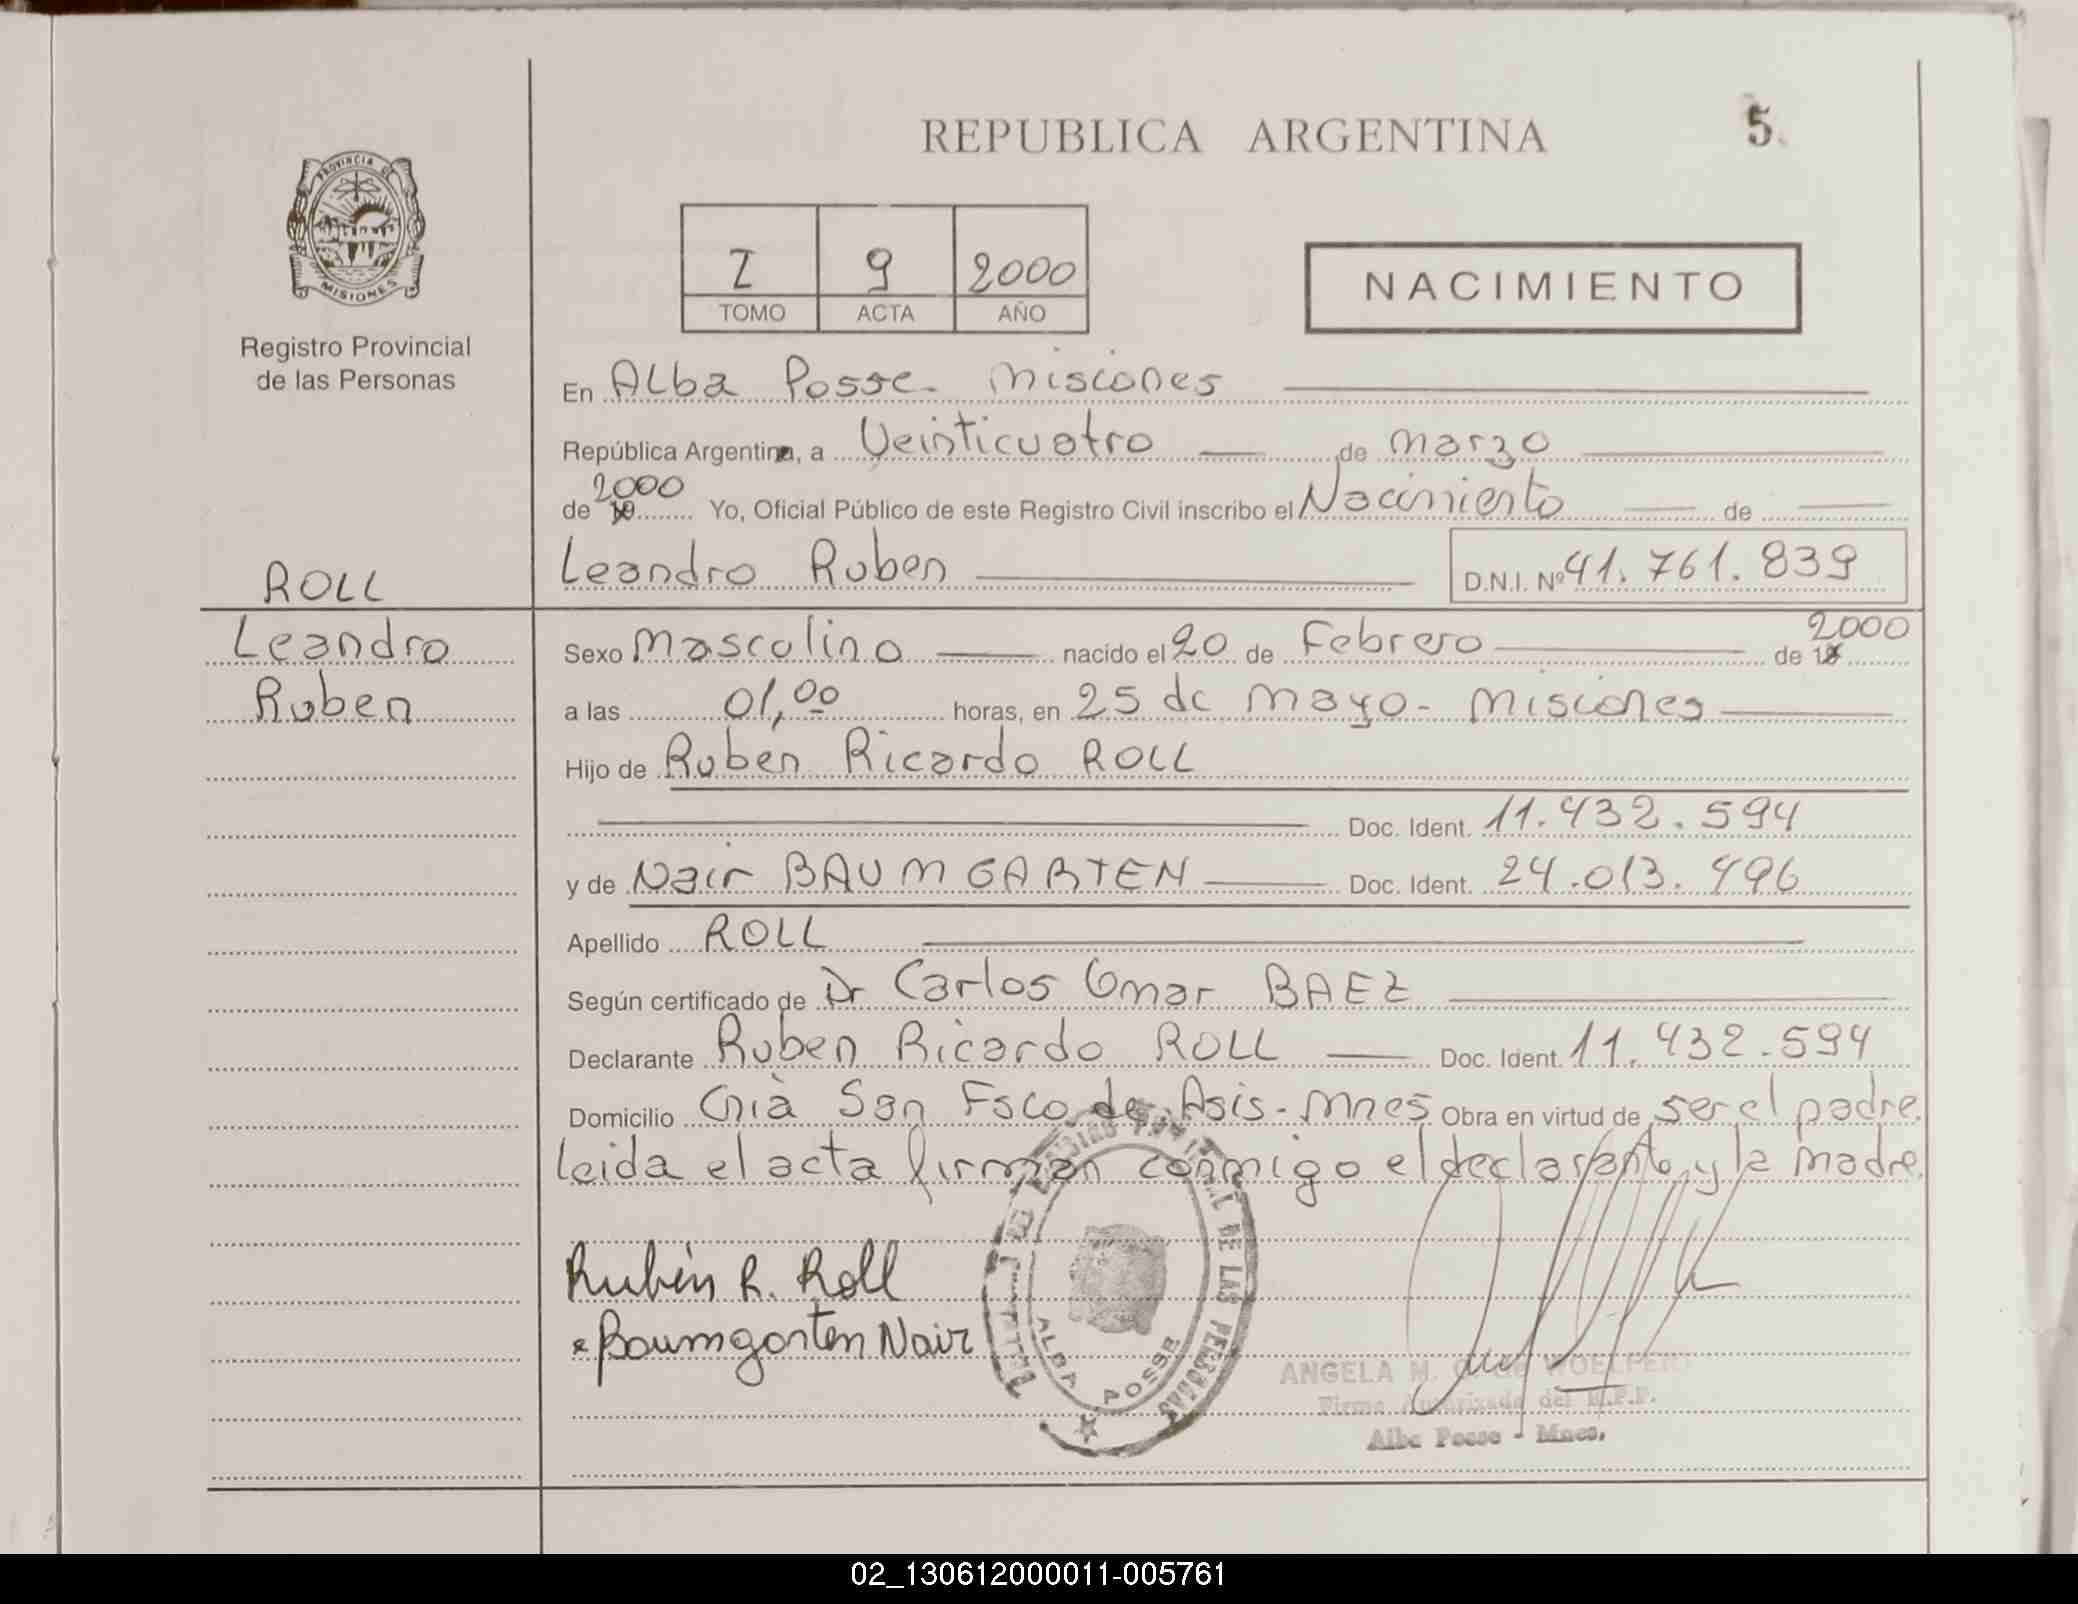 REPUBLICA ARGENTINA
5.
PROVINCIA DE
MISIONES
Registro Provincial
de las Personas
I 9 2000
TOMO ACTA AÑO
NACIMIENTO
En Alba Posse - Misiones
República Argentina, a Veinticuatro de Marzo
de 19 2000 Yo, Oficial Público de este Registro Civil inscribo el Nacimiento de
Leandro Ruben D.N.I. Nº 41.761.839
ROLL
Leandro
Ruben
Sexo Masculino nacido el 20 de Febrero de 2000
a las 01,00 horas, en 25 de Mayo - Misiones
Hijo de Ruben Ricardo ROLL
Doc. Ident. 11.432.594
y de Nair BAUMGARTEN Doc. Ident. 24.013.496
Apellido ROLL
Según certificado de Dr Carlos Omar BAEZ
Declarante Ruben Ricardo ROLL Doc. Ident. 11.432.594
Domicilio Cnia San Fsco de Asis - Mnes Obra en virtud de ser el padre.
Leida el acta firman conmigo el declarante y la madre.
Rubén R. Roll
Baumgarten Nair
DE LAS PERSONAS
ALBA POSSE
ANGELA M. de WOELFERT
Firma Autorizada del R.P.P.
Alba Posse - Mnes.
02_130612000011-005761